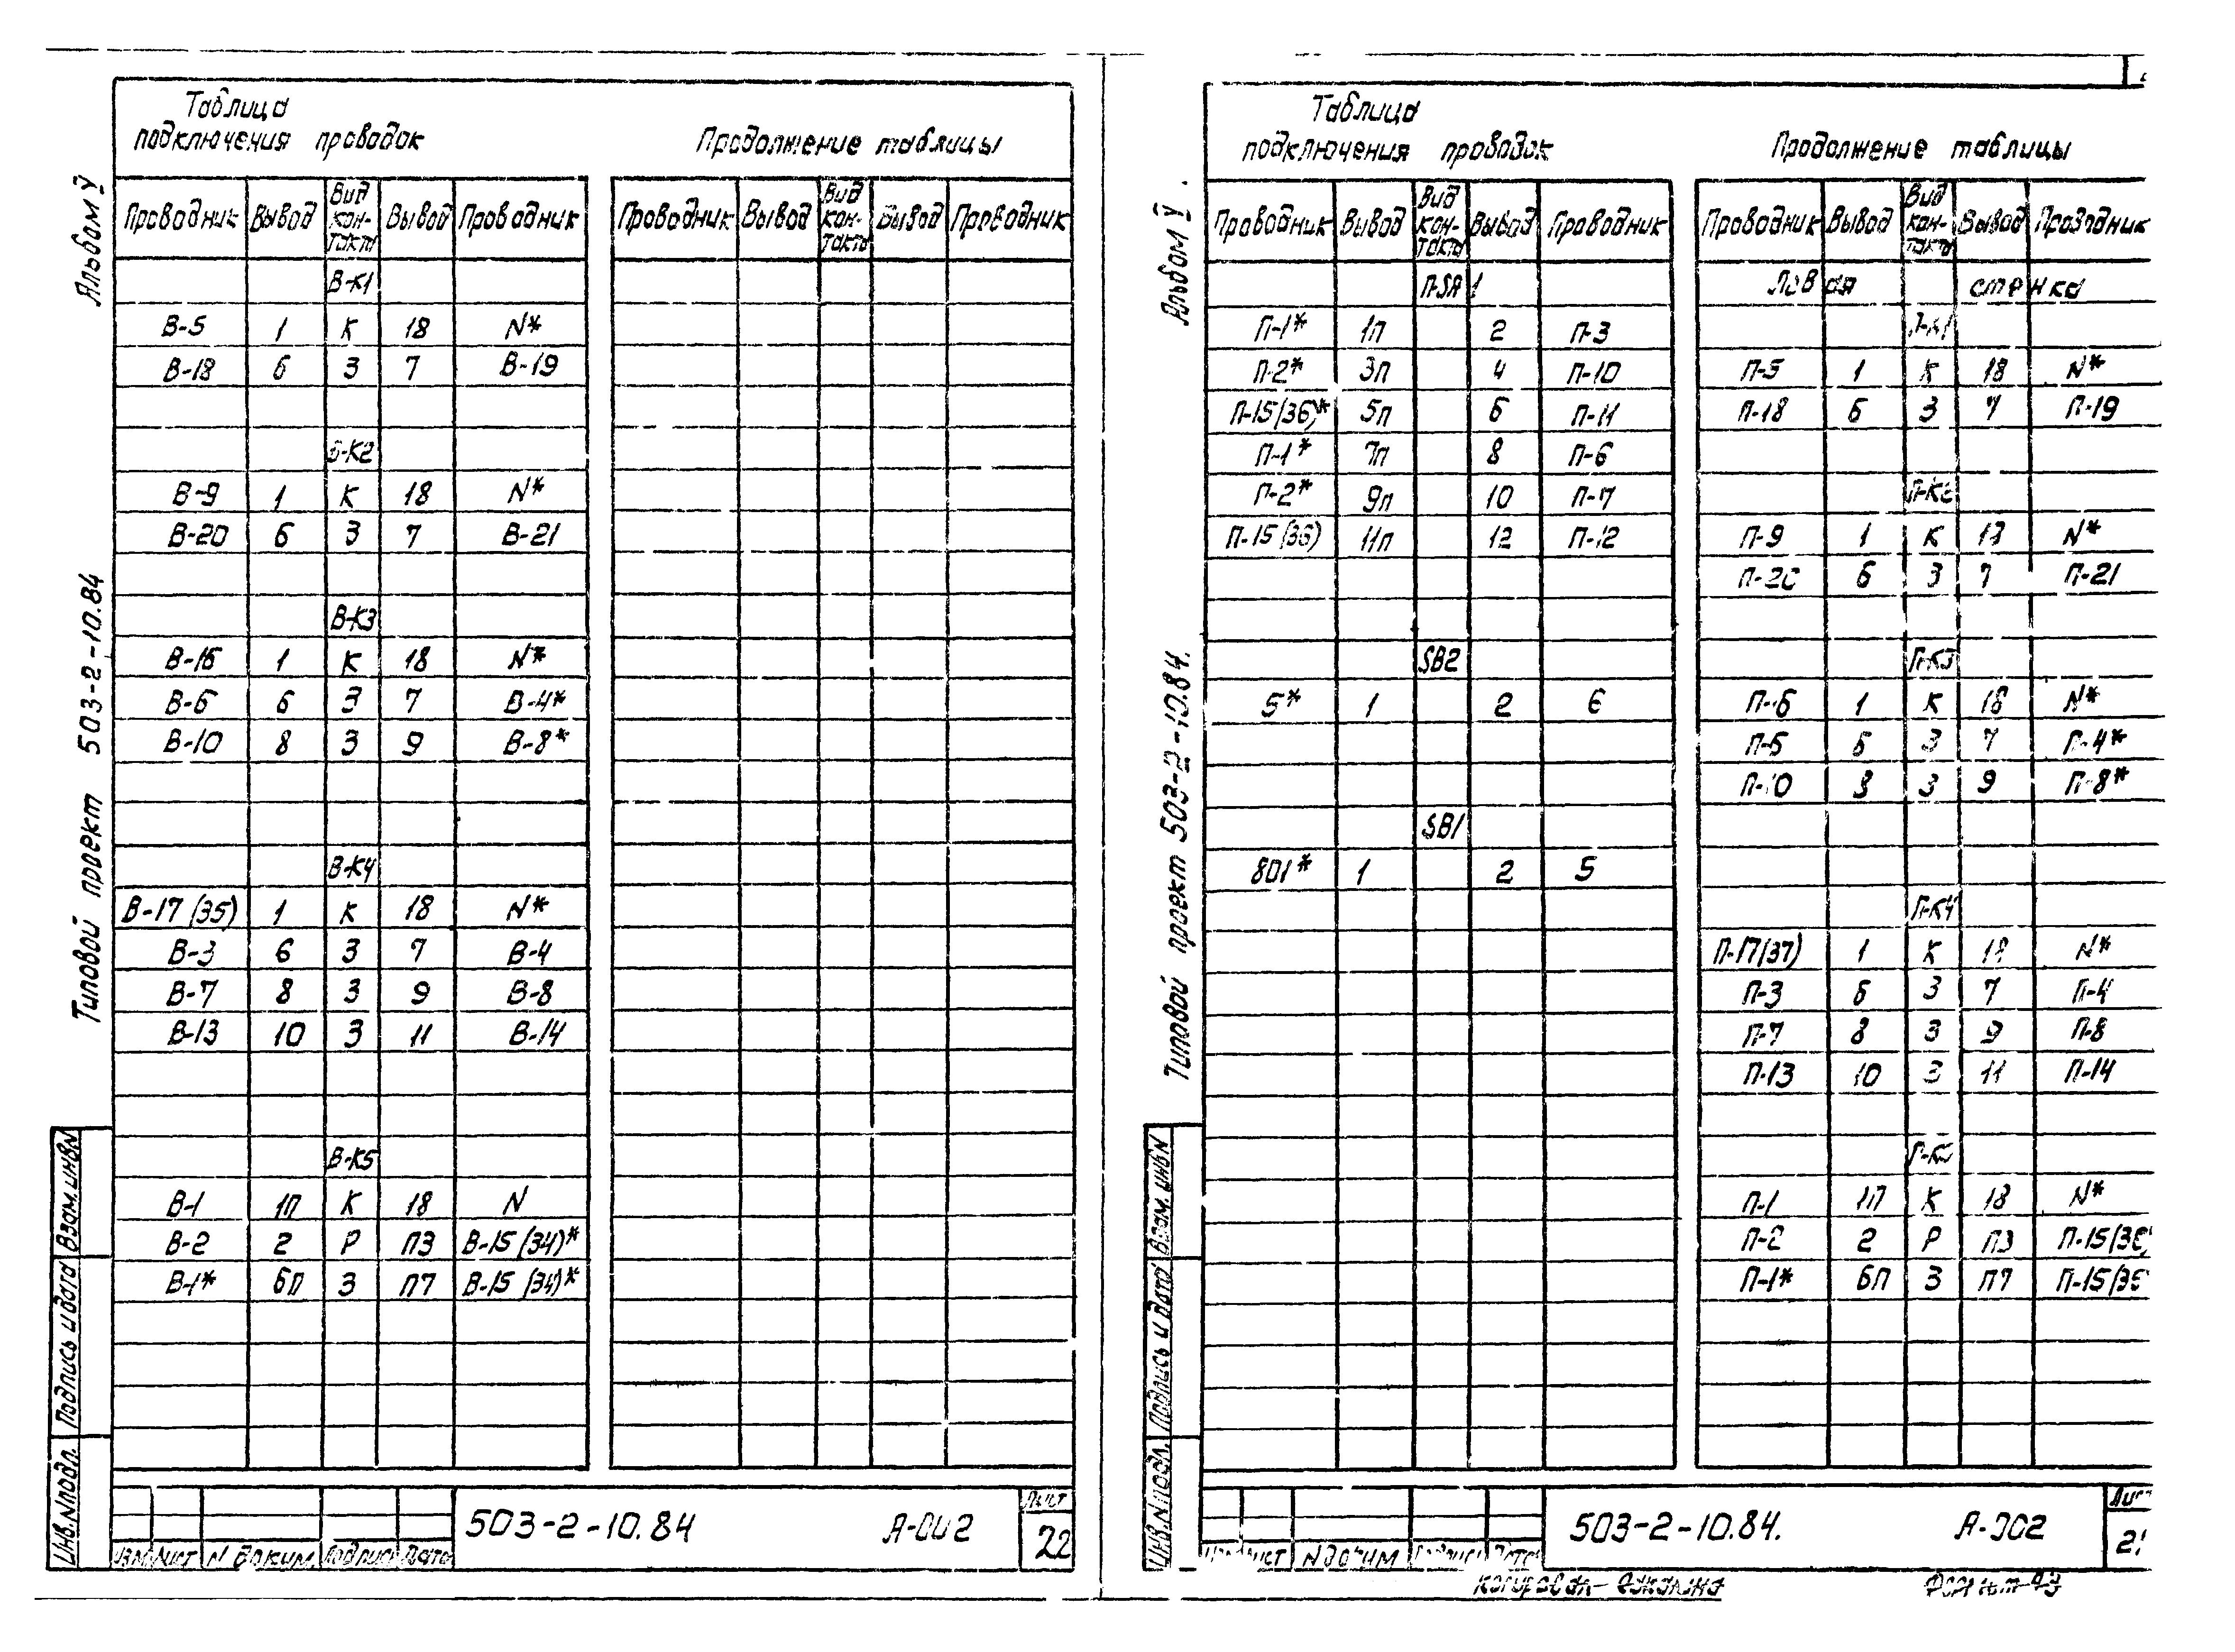 Таблица
подключения проводок
Продолжение таблицы
Проводник Вывод Вид кон-такта Вывод Проводник
Проводник Вывод Вид кон-такта Вывод Проводник
В-К1
В-5 1 К 18 N*
В-18 6 З 7 В-19
В-К2
В-9 1 К 18 N*
В-20 6 З 7 В-21
В-К3
В-16 1 К 18 N*
В-6 6 З 7 В-4*
В-10 8 З 9 В-8*
В-К4
В-17 (35) 1 К 18 N*
В-3 6 З 7 В-4
В-7 8 З 9 В-8
В-13 10 З 11 В-14
В-К5
В-1 1П К 18 N
В-2 2 Р П3 В-15 (34)*
В-1* 6П З П7 В-15 (34)*
Альбом V
Типовой проект 503-2-10.84
Взам.инв№
Подпись и дата
Инв.№подл.
Изм Лист N докум. Подпись Дата
503-2-10.84 А-002
Лист
22
Таблица
подключения проводок
Продолжение таблицы
Проводник Вывод Вид кон-такта Вывод Проводник
П-SA1
П-1* 1п 2 П-3
П-2* 3п 4 П-10
П-15(36)* 5п 6 П-11
П-1* 7п 8 П-6
П-2* 9п 10 П-7
П-15(36) 11п 12 П-12
SB2
5* 1 2 6
SB1
801* 1 2 5
Проводник Вывод Вид кон-такта Вывод Проводник
Левая стенка
П-К1
П-5 1 К 18 N*
П-18 6 З 7 П-19
П-К2
П-9 1 К 18 N*
П-20 6 З 7 П-21
П-К3
П-16 1 К 18 N*
П-6 6 З 7 П-4*
П-10 8 З 9 П-8*
П-К4
П-17(37) 1 К 18 N*
П-3 6 З 7 П-4
П-7 8 З 9 П-8
П-13 10 З 11 П-14
П-К5
П-1 1П К 18 N*
П-2 2 Р П3 П-15(36)
П-1* 6П З П7 П-15(36)
Альбом V.
Типовой проект 503-2-10.84.
Взам. инв№
Подпись и дата
Инв.№подл.
Лист N докум Подпись Дата
503-2-10.84. А-002
Лист
Копировал
Формат